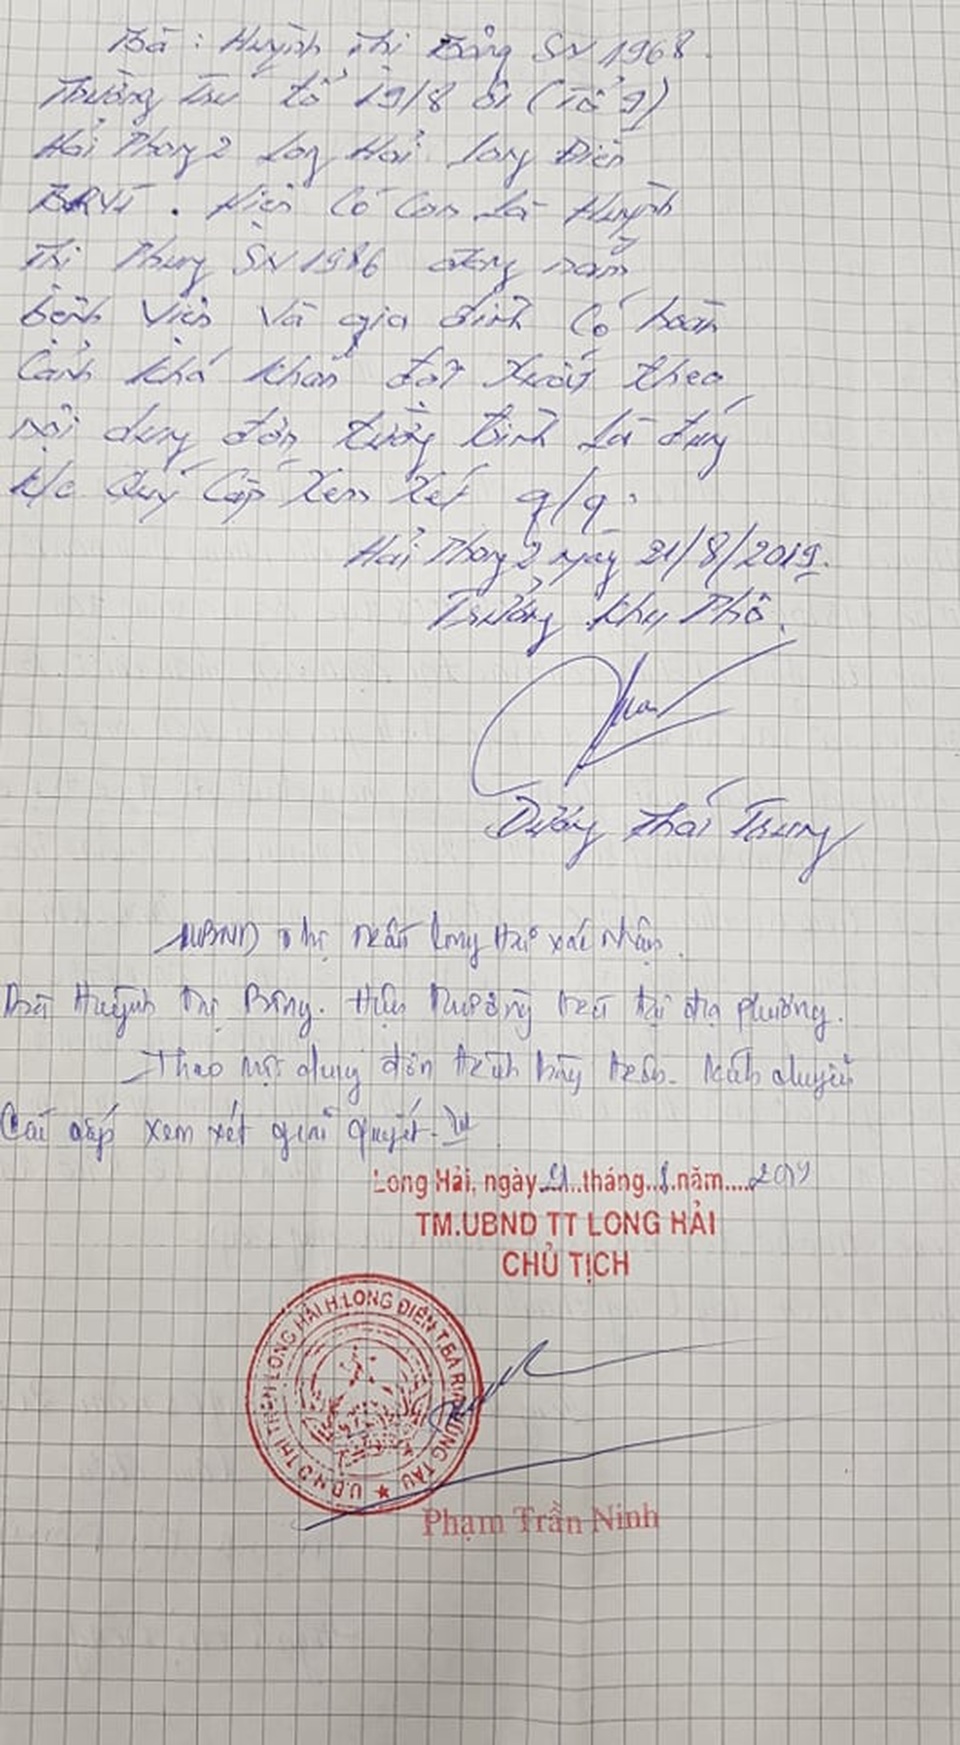 Bà : Huỳnh Thị Bông SN 1968.
Thường Trú tổ 19/8 ĐI (Tổ 9)
Hải Phong 2 Long Hải Long Điền
BRVT . Hiện Có Con Là Huỳnh
Thị Phụng SN 1986 đang nằm
bệnh viện Và gia đình Có hoàn
Cảnh khó khăn đột Xuất theo
nội dung đơn tường trình Là đúng
K/c Quý Cấp Xem Xét
Hải Phong 2 ngày 21/8/2019.
Trưởng khu Phố.
Dương Thái Trung
UBND thị trấn Long Hải xác nhận.
Bà Huỳnh Thị Bông. Hiện thường trú tại địa phương.
Theo nội dung đơn trình bày trên. Kính chuyển
Các cấp xem xét giải quyết.
Long Hải, ngày 21 tháng 8 năm 2019
TM.UBND TT LONG HẢI
CHỦ TỊCH
U.B.N.D THỊ TRẤN LONG HẢI H.LONG ĐIỀN T.BÀ RỊA VŨNG TÀU
Phạm Trần Ninh